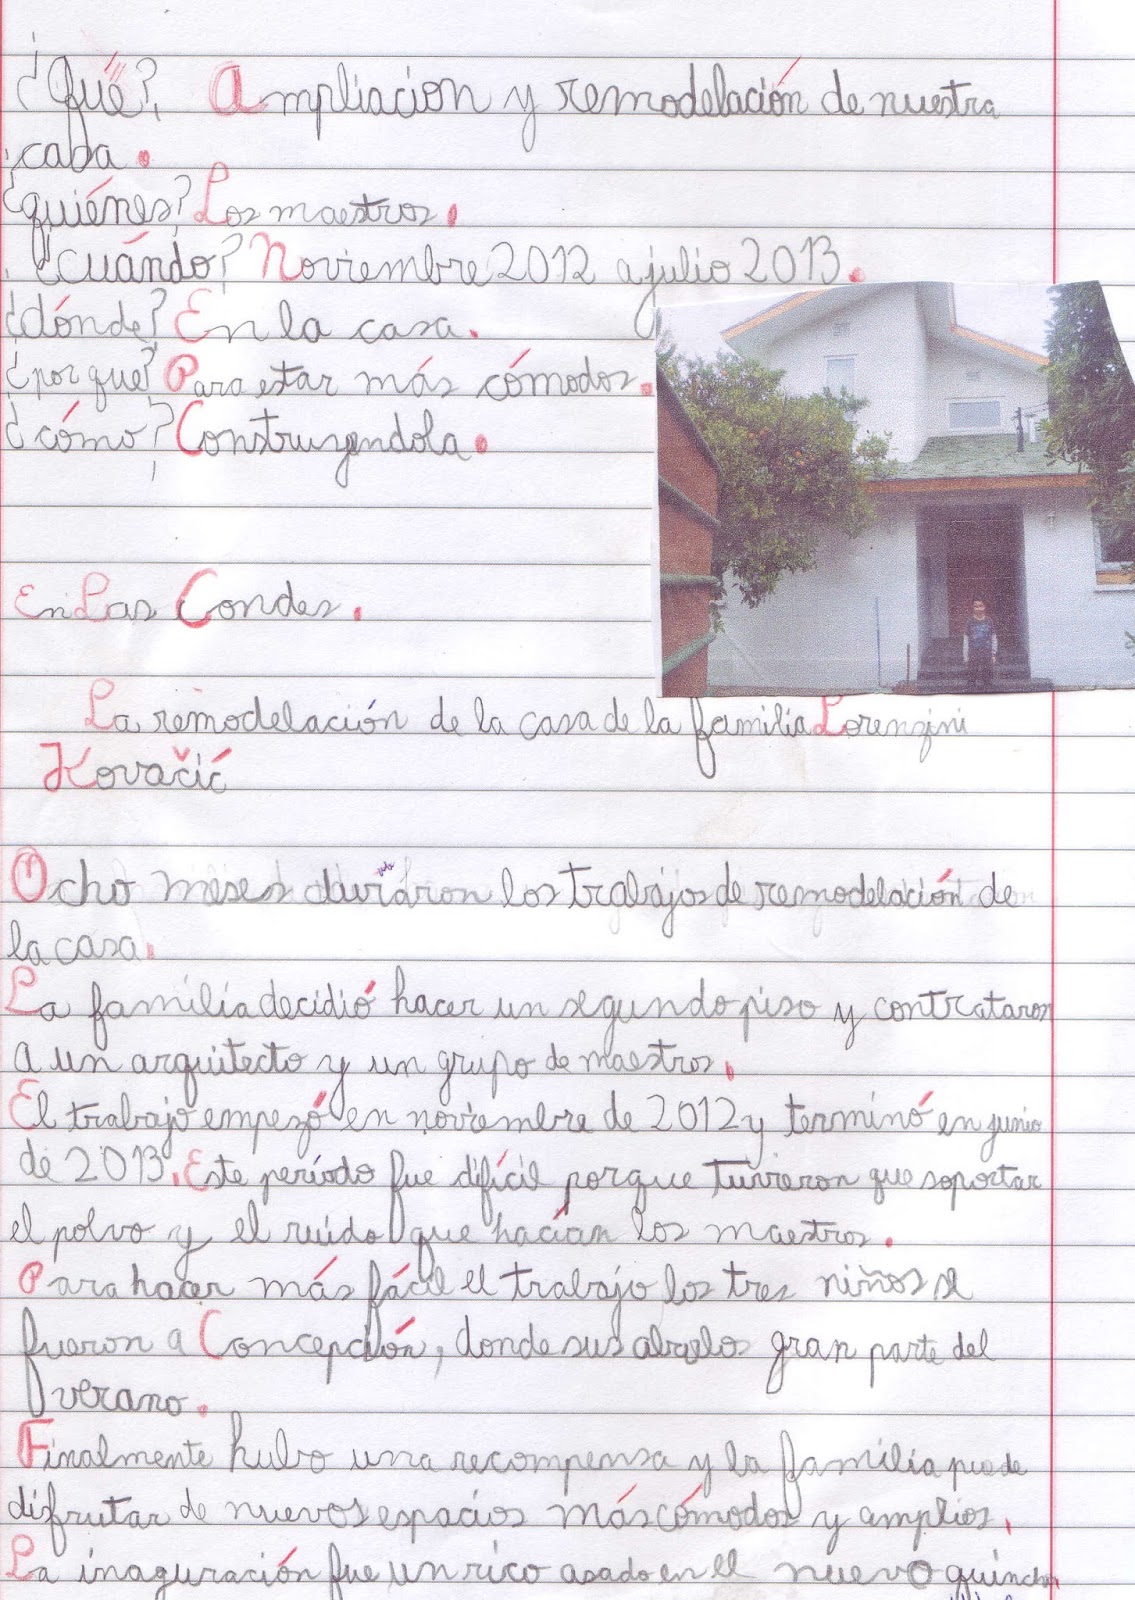 ¿Qué? Ampliacion y remodelación de nuestra
casa.
¿quiénes? Los maestros.
¿cuándo? Noviembre 2012 a julio 2013.
¿dónde? En la casa.
¿por que? Para estar más cómodos.
¿cómo? Construyendola.
En Las Condes.
La remodelación de la casa de la familia Lorenzini
Kovačić
Ocho meses duraron los trabajos de remodelación de
la casa.
La familia decidió hacer un segundo piso y contrataron
a un arquitecto y un grupo de maestros.
El trabajo empezó en noviembre de 2012 y terminó en junio
de 2013. Este período fue difícil porque tuvieron que soportar
el polvo y el ruido que hacían los maestros.
Para hacer más fácil el trabajo los tres niños se
fueron a Concepción, donde sus abuelos gran parte del
verano.
Finalmente hubo una recompensa y la familia puede
disfrutar de nuevos espacios más cómodos y amplios.
La inaguración fue un rico asado en el nuevo quincho.